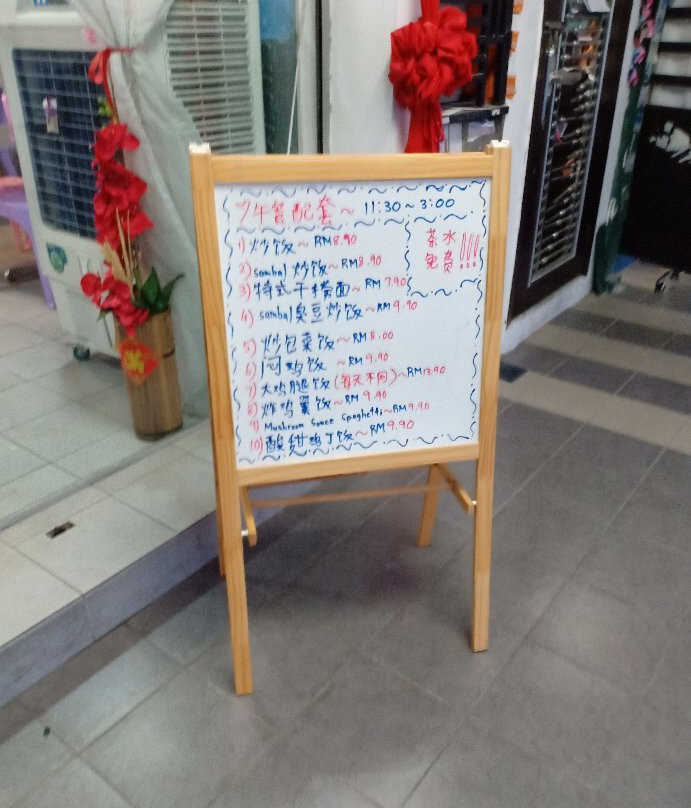 午餐配套~ 11:30 ~ 3:00
茶水
免费!!!
1) 炒饭~ RM8.90
2) sambal 炒饭~RM8.90
3) 特式干捞面~ RM 7.90
4) sambal臭豆炒饭~RM9.90
5) 炒包菜饭~RM 8.00
6) 闷鸡饭 ~RM 9.90
7) 大鸡腿饭(每天不同)~RM13.90
8) 炸鸡翼饭~RM 9.90
9) Mushroom Souce Spaghetti~RM9.90
10) 酸甜鸡丁饭~RM9.90